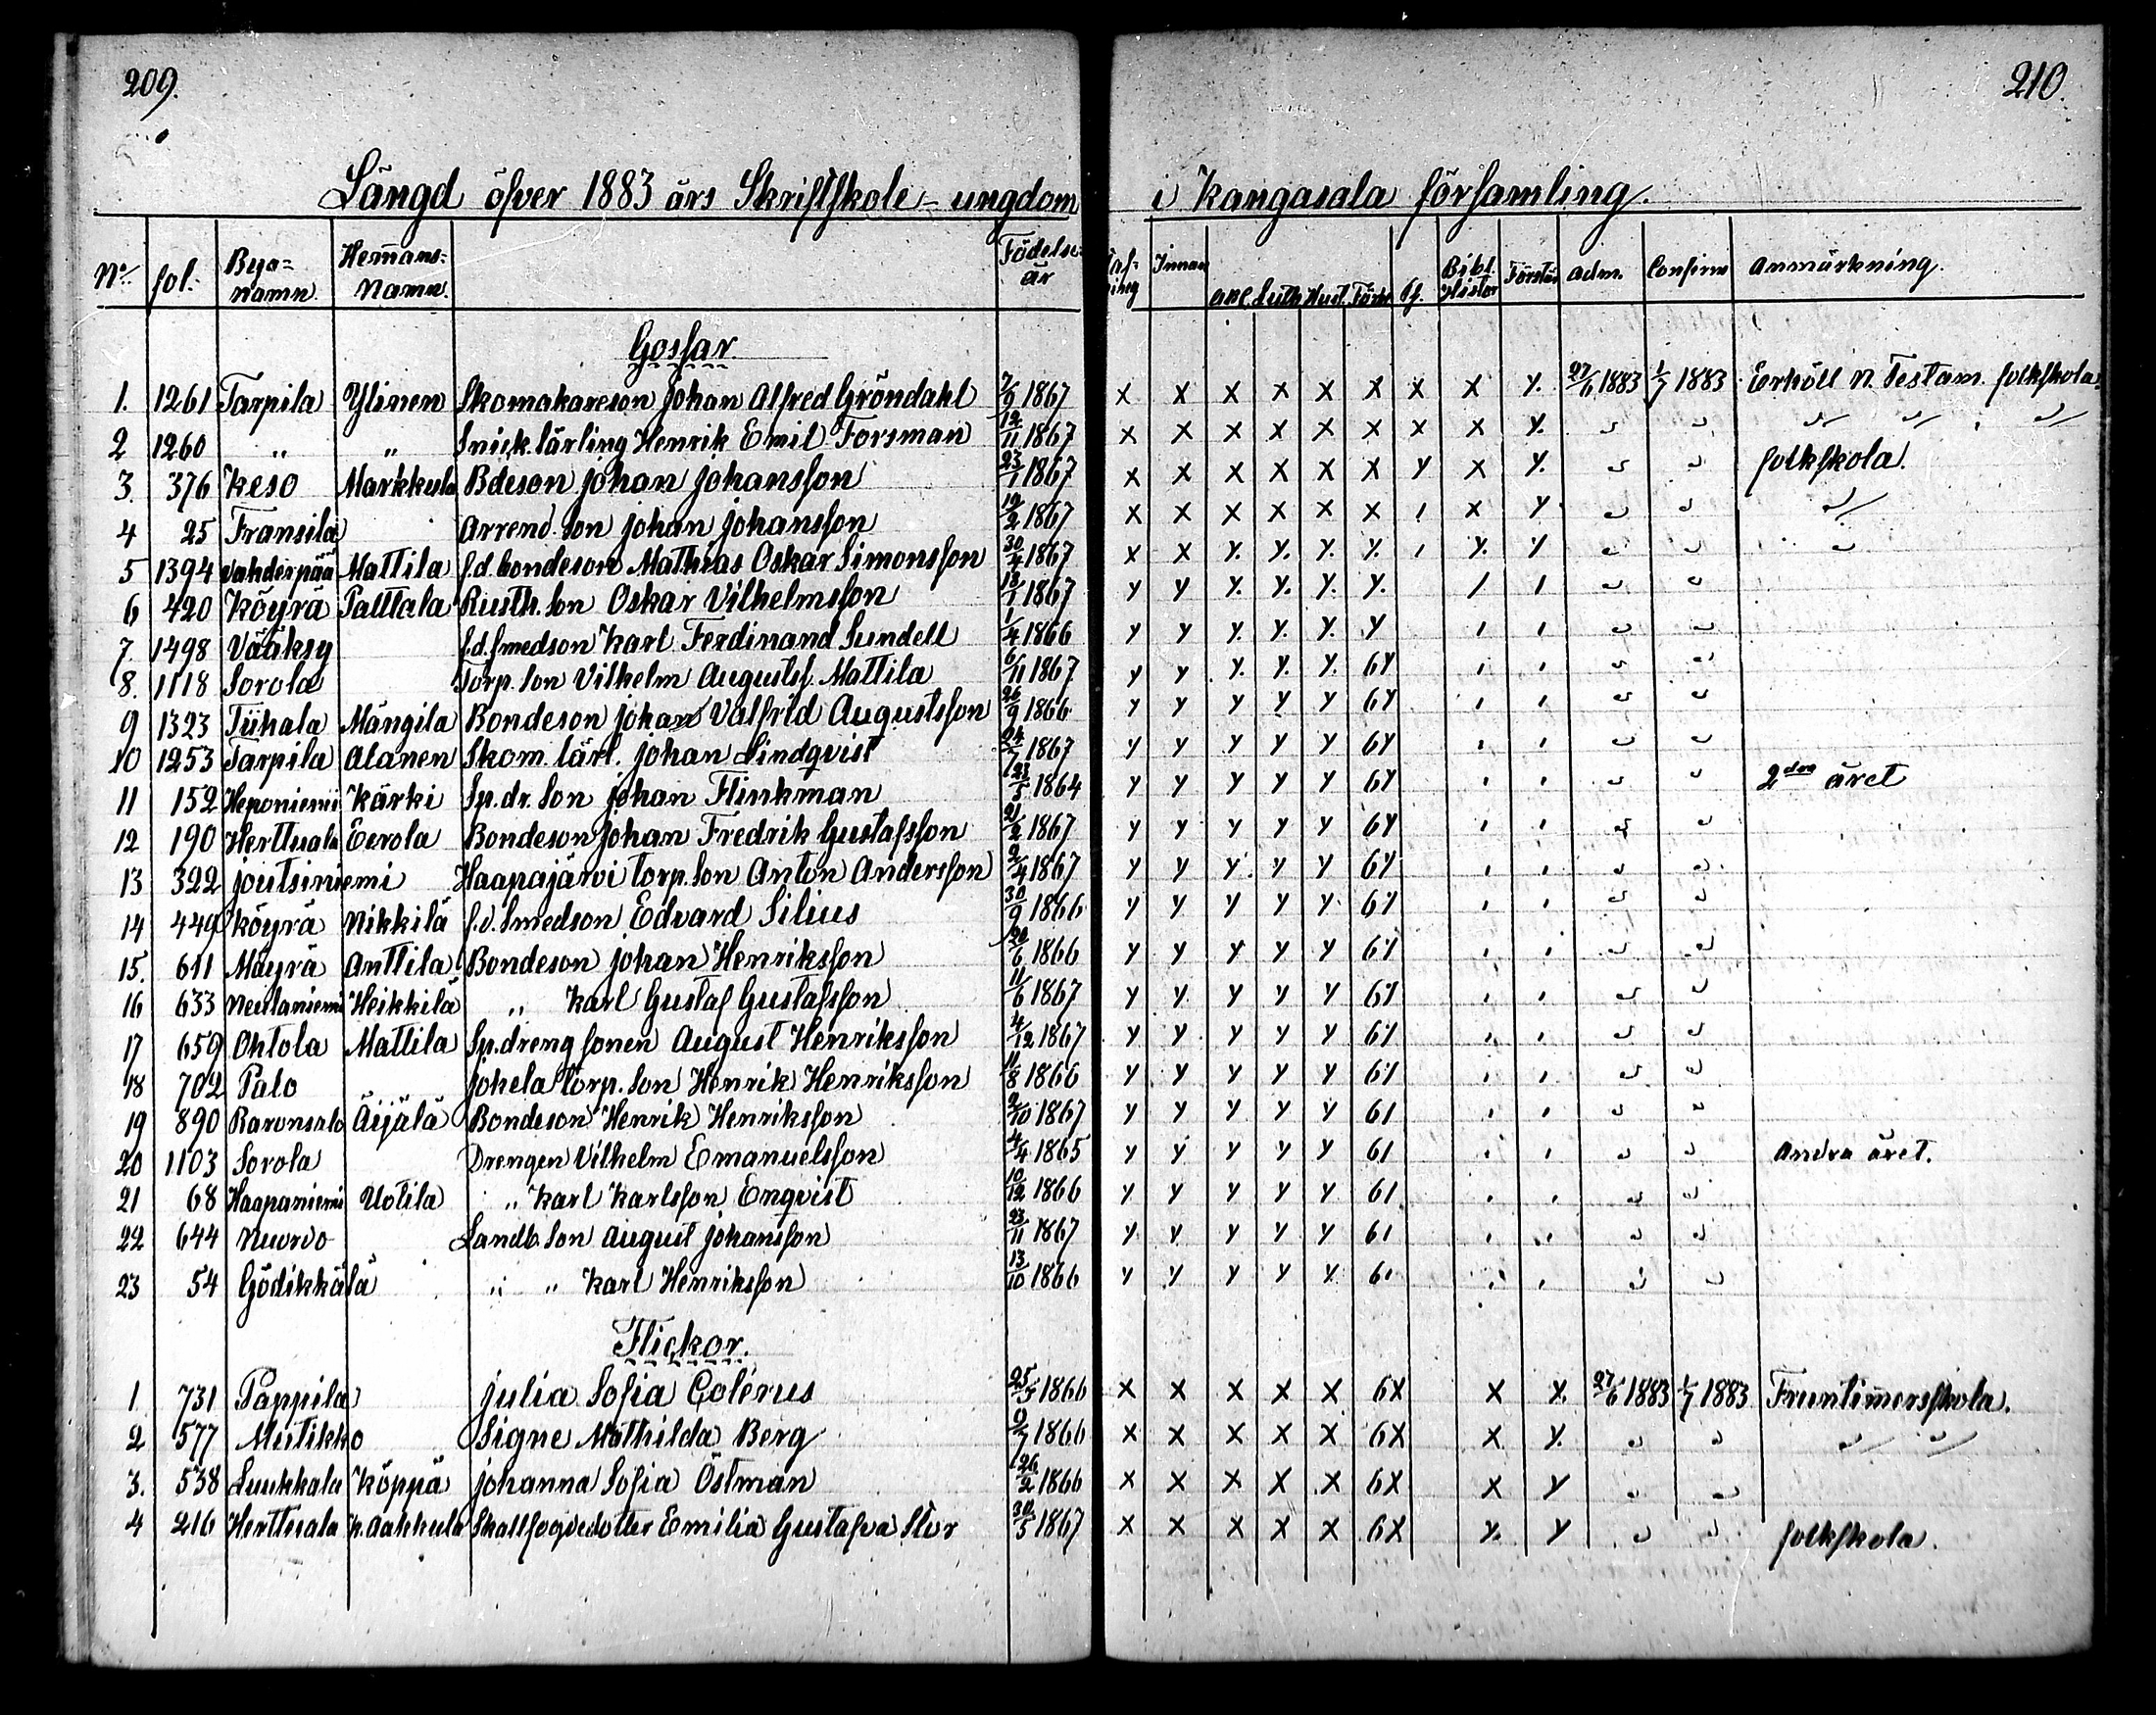 209.
210.
Längd öfver 1883 års Skriftskole-ungdom i Kangasala församling.
No fol. Bya=namn. Hemans=Namn. Födelse år Innan ABC Luth Hust. Förkl. Bibl. Histor Förstån adm. Confirm Anmärkning.
Gossar.
1. 1261 Tarpila Ylinen Skomakareson Johan Alfred Gröndahl 7/9 1867 x x x x x x x x y. 27/6 1883 1/7 1883 Erhöll N. Testam. folkskola
2 1260 „ „ Snick. lärling Henrik Emil Forsman 12/11 1867 x x x x x x x x y. " " " " "
3 376 Keso Markkula Bdeson Johan Johansson 23/1 1867 x x x x x x y x y. " " folkskola.
4 25 Fransila Arrend. son Johan Johansson 19/2 1867 x x x x x x ı x y " " "
5 1394 Vahderpää Mattila f.d. bondeson Mathias Oskar Simonsson 30/4 1867 x x y. y. y. y. ı y. y " " "
6 420 Köyrä Pattala Rusth. son Oskar Vilhelmsson 13/1 1867 y y y. y. y. y. / ı " "
7. 1498 Vääksy f.d. smedson Karl Ferdinand Sundell 1/4 1866 y y y. y. y. y ı ı " "
8. 1118 Sorola Torp. son Vilhelm Augustsf. Mattila 6/11 1867 y y y. y. y. 6y ı ı " "
9 1323 Tiihala Mängila Bondeson Johan Valfrid Augustsson 26/9 1866 y y y y y 6y ı ı " "
10 1253 Tarpila Alanen Skom. lärl. Johan Lindqvist 24/7 1867 y y y y y 6y ı ı " "
11 152 Heponiemi Kärki Sp. dr. son Johan Flinkman 23/5 1864 y y y y y 6y ı ı " " 2dra året
12 190 Herttuala Eerola Bondeson Johan Fredrik Gustafsson 21/2 1867 y y y y y 6y ı ı " "
13 322 Joutsiniemi Haapajärvi torp. son Anton Andersson 2/4 1867 y y y. y y 6y ı ı " "
14 449 Köyrä Nikkilä f.d. Smedson Edvard Silius 30/9 1866 y y y y y 6y ı ı " "
15. 611 Mäyrä Anttila Bondeson Johan Henriksson 20/6 1866 y y y y y 6y ı ı " "
16 633 Neulaniemi Heikkilä „ Karl Gustaf Gustafsson 11/6 1867 y y y y y 6y ı ı " "
17 659 Ohtola Mattila Sp. dreng sonen August Henriksson 4/12 1867 y y y y y 6y ı ı " "
18 702 Palo Johela torp. son Henrik Henriksson 11/8 1866 y y y y y 6y ı ı " "
19 890 Raronsalo Äijälä Bondeson Henrik Henriksson 2/10 1867 y y y y y 6ı ı ı " "
20 1103 Sorola Drengen Vilhelm Emanuelsson 4/4 1865 y y y y y 6ı ı ı " " Andra året.
21 68 Haapaniemi Uotila „ Karl Karlsson Enqvist 10/12 1866 y y y y y 6ı ı ı " "
22 644 Nuorvo Landb. son August Johansson 23/11 1867 y y y y y 6ı ı ı " "
23 54 Gödikkälä „ „ Karl Henriksson 13/10 1866 y y y y y 6ı ı ı " "
Flickor.
1. 731 Pappila Julia Sofia Colérus 25/5 1866 x x x x x 6x x x. 27/6 1883 1/7 1883 Fruntimersskola.
2 577 Mutikko Signe Mathilda Berg 9/7 1866 x x x x x 6x x y. " " " "
3. 538 Luukkala Köppä Johanna Sofia Östman 26/2 1866 x x x x x 6x x y " "
4 216 Herttuala Kaakkula Skattfogdedotter Emilia Gustafva Stor 30/5 1867 x x x x x 6x y. y " " folkskola.